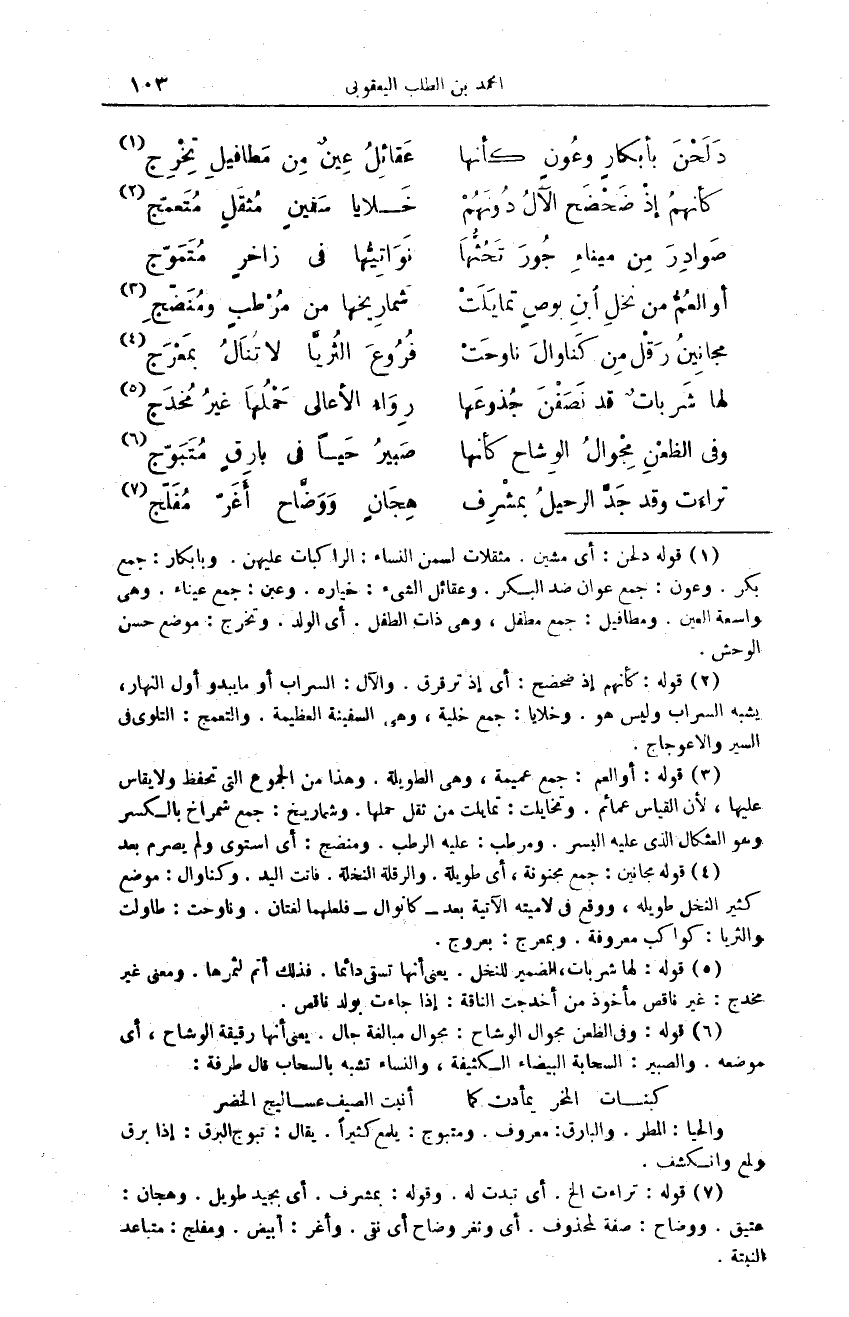 امحمد بن الطلب اليعقوبى ١٠٣
دَلَحْنَ بأبكارٍ وعُونٍ كأنها عَقائِلُ عِينٌ مِن مَطافيلِ تِخْرِجِ (١)
كأنهمُ إذْ ضَحْضَح الآلُ دُونَهُمْ خَلايا سَفينٍ مُثقَلٍ مُتَعمّجِ (٢)
صَوادِرَ مِن ميناءِ جُورَ تَحُثُّهَا نَوَاتِيُّها فى زاخرٍ مُتَمَوّجِ
أو العُمُّ من نخلِ أبنِ بوصٍ تمايَلَتْ شماريخها من مرْطبٍ ومُنَضّجِ (٣)
مجانينُ رَقْل من كناوالَ ناوحَتْ فُرُوعَ الثُريَّا لا تُنَالُ بمَعْرَجِ (٤)
لها شَرباتٌ قد نَصَفْنَ جُذوعَها رِوَاءِ الأعالى حَمْلُهَا غيرُ مُخدَجِ (٥)
وفى الظعْنِ مِجْوالُ الوِشاحِ كأنها صَبيرُ حَيـاً فى بارِقٍ مُتَبَوّجِ (٦)
تراءت وقد جَدَّ الرحيلُ بمشْرِف هِجَانٍ وَوَضَّاح أَغَرّ مُفَلّجِ (٧)
(١) قوله دلحن : أى مشين . مثقلات لسمن النساء : الراكبات عليهن . وبابكار : جمع
بكر . وعون : جمع عوان ضد البكر . وعقائل الشىء : خياره . وعين : جمع عيناء . وهى
واسعة العين . ومطافيل : جمع مطفل ، وهى ذات الطفل . أى الولد . وتخرج : موضع حسن
الوحش .
(٢) قوله : كأنهم إذ ضحضح : أى إذ ترقرق . والآل : السراب أو مايبدو أول النهار،
يشبه السراب وليس هو . وخلايا : جمع خلية ، وهى السفينة العظيمة . والتعمج : التلوى فى
السير والاعوجاج .
(٣) قوله : أو العم : جمع عميمة ، وهى الطويلة . وهذا من الجموع التى تحفظ ولا يقاس
عليها ، لأن القياس عمائم . وتمايلت : تمايلت من ثقل حملها . وشماريخ : جمع شمراخ بالكسر
وهو العثكال الذى عليه البسر . ومرطب : عليه الرطب . ومنضج : أى استوى ولم يصرم بعد
(٤) قوله مجانين : جمع مجنونة ، أى طويلة . والرقلة النخلة . فاتت اليد . وكناوال : موضع
كثير النخل طويله ، ووقع فى لاميته الآتية بعد ــ كانوال ــ فلعلهما لغتان . وناوحت : طاولت
والثريا : كواكب معروفة . وبمعرج : بعروج .
(٥) قوله : لها شربات، الضمير للنخل . يعنى أنها تسقى دائما . فذلك أتم لثمرها . ومعنى غير
مخدج : غير ناقص مأخوذ من أخدجت الناقة : إذا جاءت بولد ناقص .
(٦) قوله : وفى الظعن مجوال الوشاح : مجوال مبالغة جال . يعنى أنها رقيقة الوشاح ، أى
موضعه . والصبير : السحابة البيضاء الكثيفة ، والنساء تشبه بالسحاب قال طرفة :
كبنات المخر يمأدن كما أنبت الصيف عساليج الخضر
والحيا : المطر . والبارق : معروف . ومتبوج : يلمع كثيراً . يقال : تبوج البرق : إذا برق
ولمع وانكشف .
(٧) قوله : تراءت الخ . أى تبدت له . وقوله : بمشرف . أى بجيد طويل . وهجان :
عتيق . ووضاح : صفة لمحذوف . أى وثغر وضاح أى نقى . وأغر : أبيض . ومفلج : متباعد
النبتة .